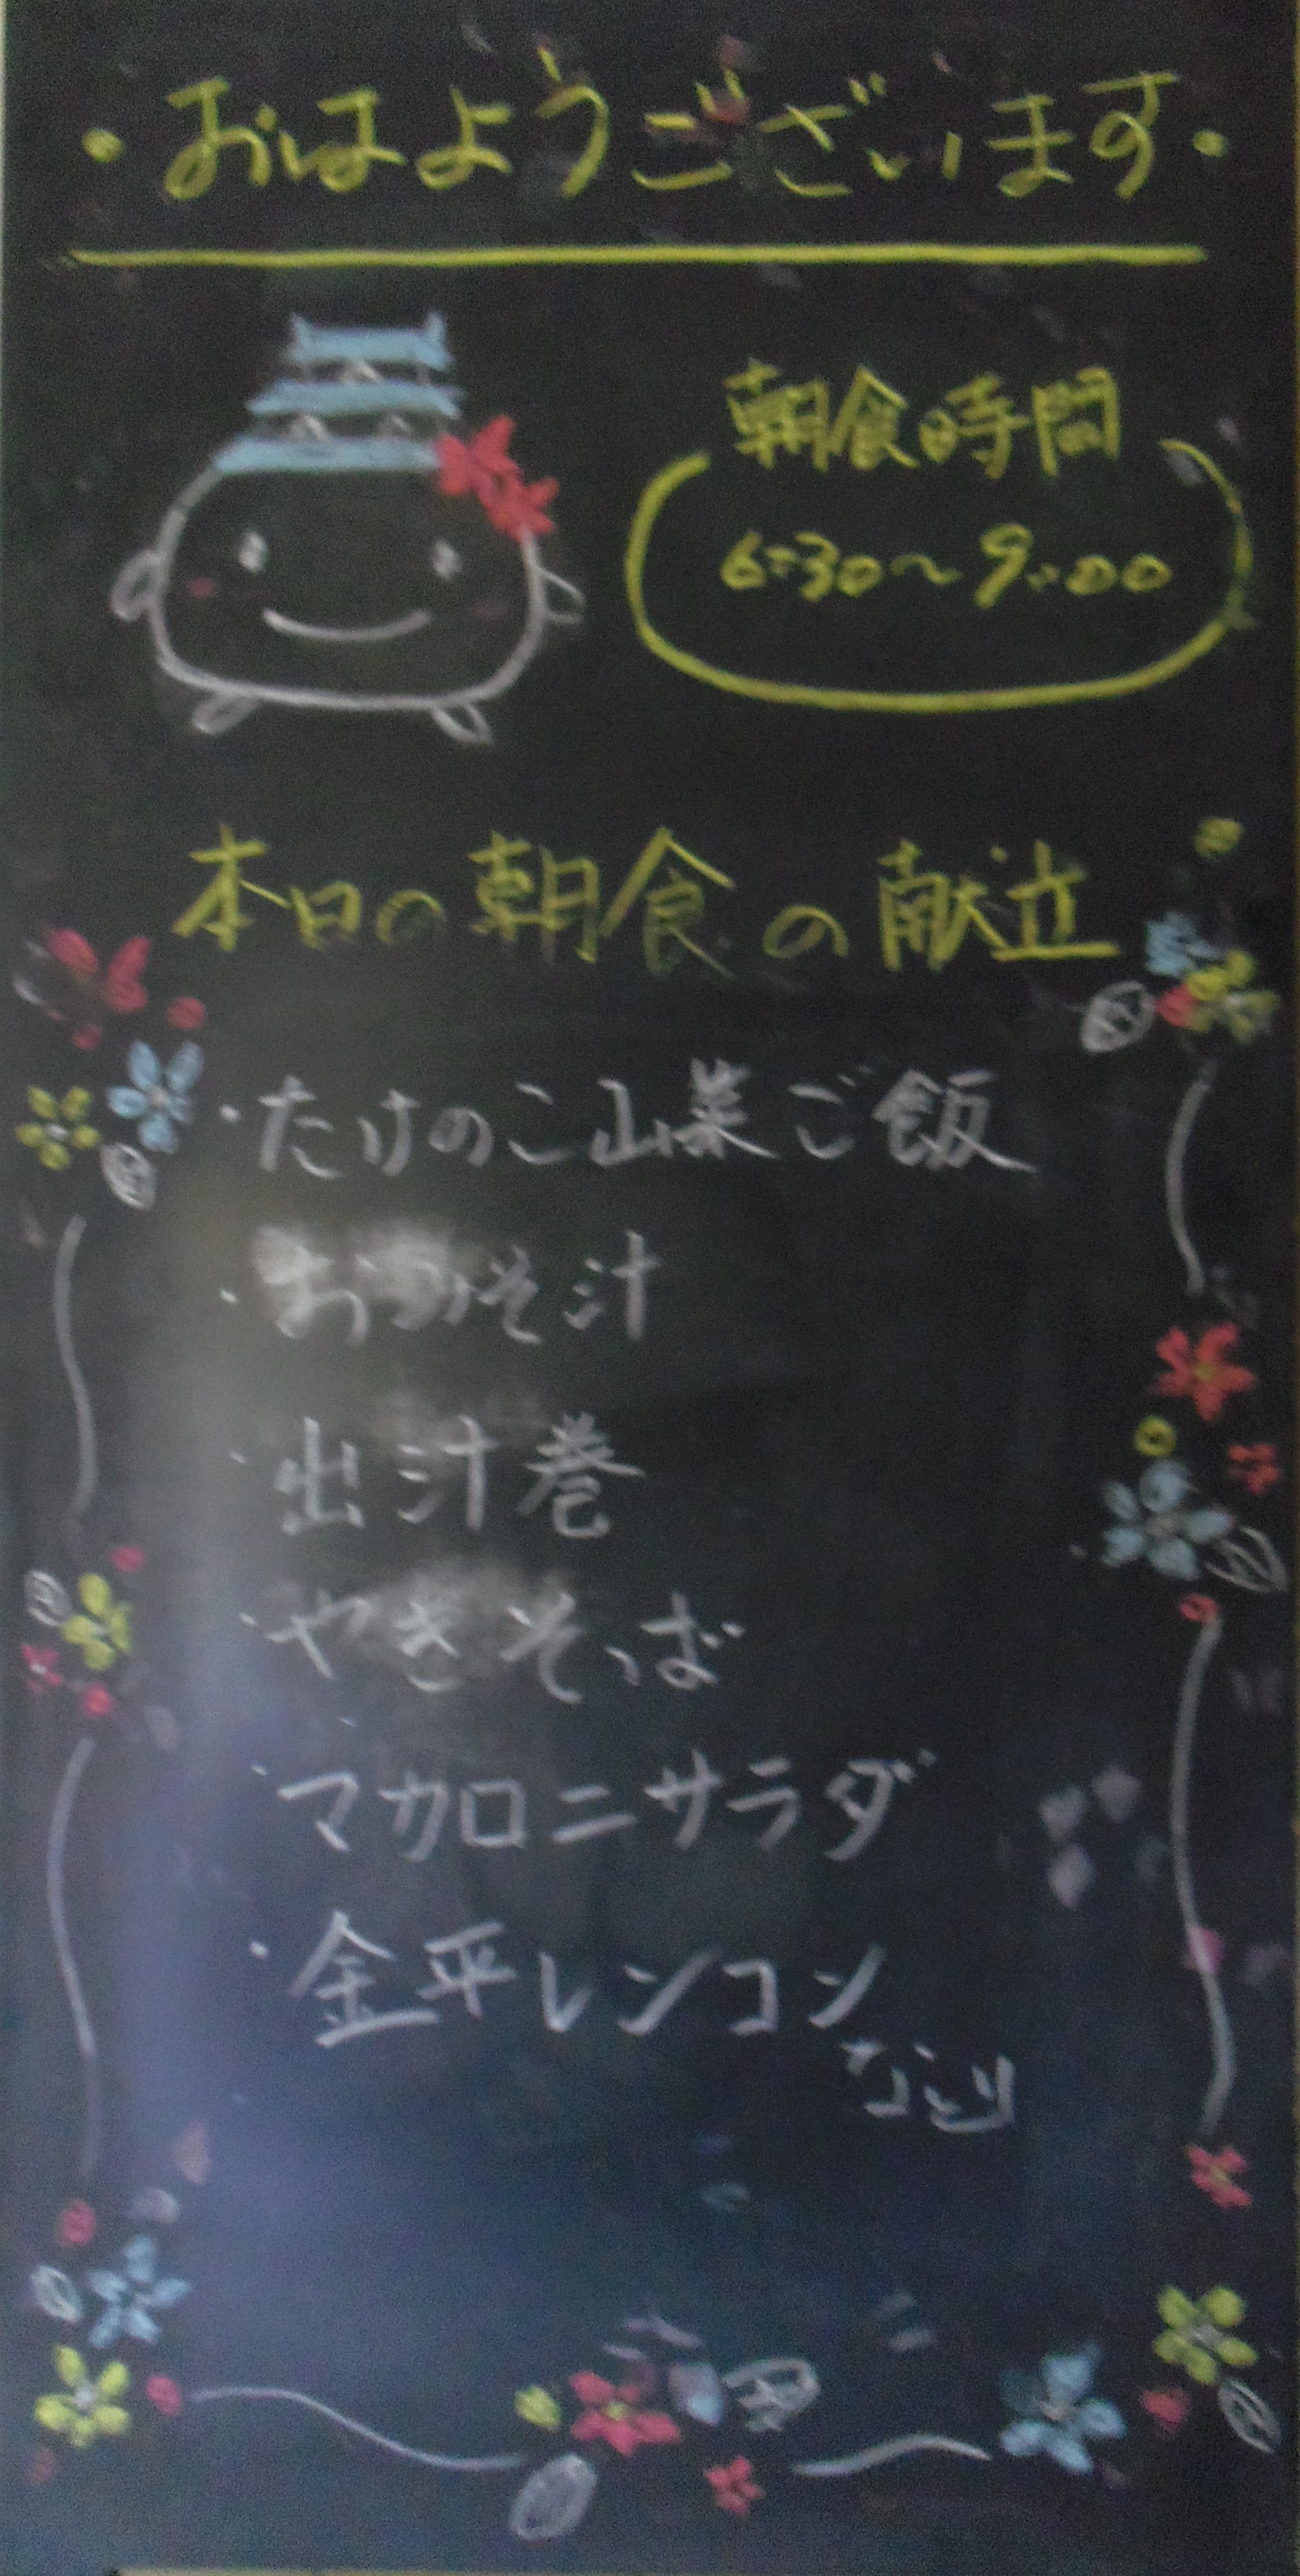 ・おはようございます・
朝食時間
6:30〜9:00
本日の朝食の献立
・たけのこ山菜ご飯
・おみそ汁
・出汁巻
・やきそば
・マカロニサラダ
・金平レンコン
など